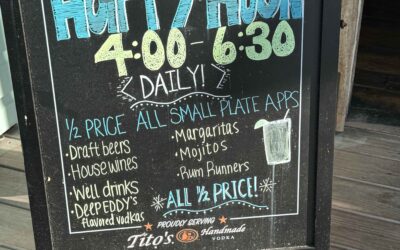 HAPPY HOUR
4:00-6:30
DAILY!
1/2 PRICE ALL SMALL PLATE APPS
• Draft beers
• House wines
• Well drinks
• DEEP EDDY'S
flavored vodkas
• Margaritas
• Mojitos
• Rum Runners
ALL 1/2 PRICE!
PROUDLY SERVING
Tito's Handmade
VODKA